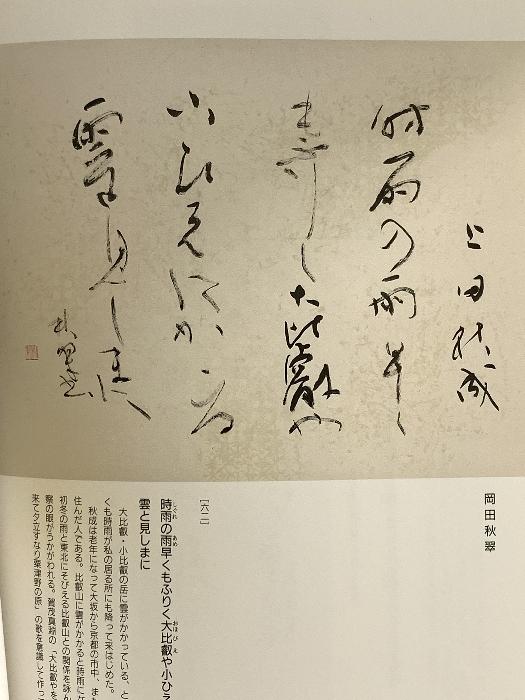 上田秋成
時雨の雨早く
もふりく大比叡や
小ひえにかかる
雲と見しまに
秋翠書
岡田秋翠
[六二]
時雨の雨早くもふりく大比叡や小ひえ
雲と見しまに
大比叡・小比叡の岳に雲がかかっている、と
くも時雨が私の居る所にも降って来はじめた。
秋成は老年になって大坂から京都の市中、また
住んだ人である。比叡山に雲がかかると時雨に
初冬の雨と東北にそびえる比叡山との関係を詠ん
察の眼がうかがわれる。賀茂真淵の「大比叡やを
来て夕立すなり粟津野の原」の歌を意識して作っ